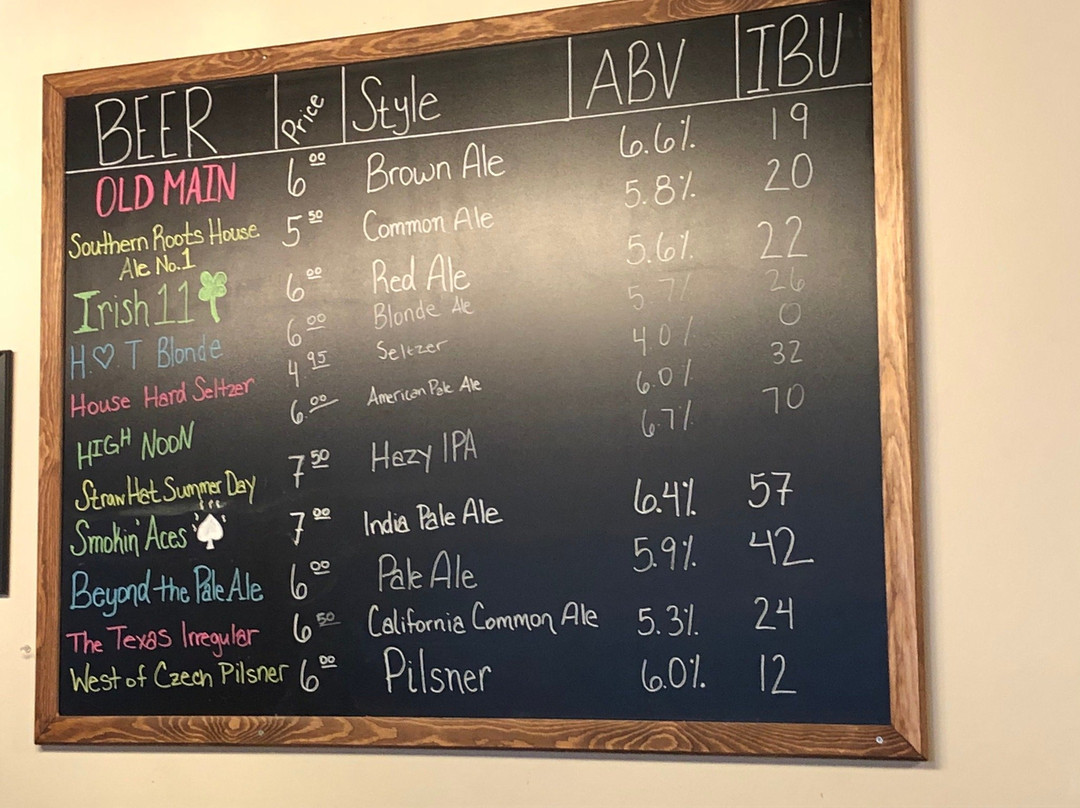 BEER Price Style ABV IBU
OLD MAIN 6.00 Brown Ale 6.6% 19
Southern Roots House 5.50 Common Ale 5.8% 20
Ale No.1
Irish 11 6.00 Red Ale 5.6% 22
H♡T Blonde 6.00 Blonde Ale 5.7% 26
House Hard Seltzer 4.95 Seltzer 4.0% 0
HIGH NOON 6.00 American Pale Ale 6.0% 32
Straw Hat Summer Day 7.50 Hazy IPA 6.7% 70
Smokin' Aces 7.00 India Pale Ale 6.4% 57
Beyond the Pale Ale 6.00 Pale Ale 5.9% 42
The Texas Irregular 6.50 California Common Ale 5.3% 24
West of Czech Pilsner 6.00 Pilsner 6.0% 12